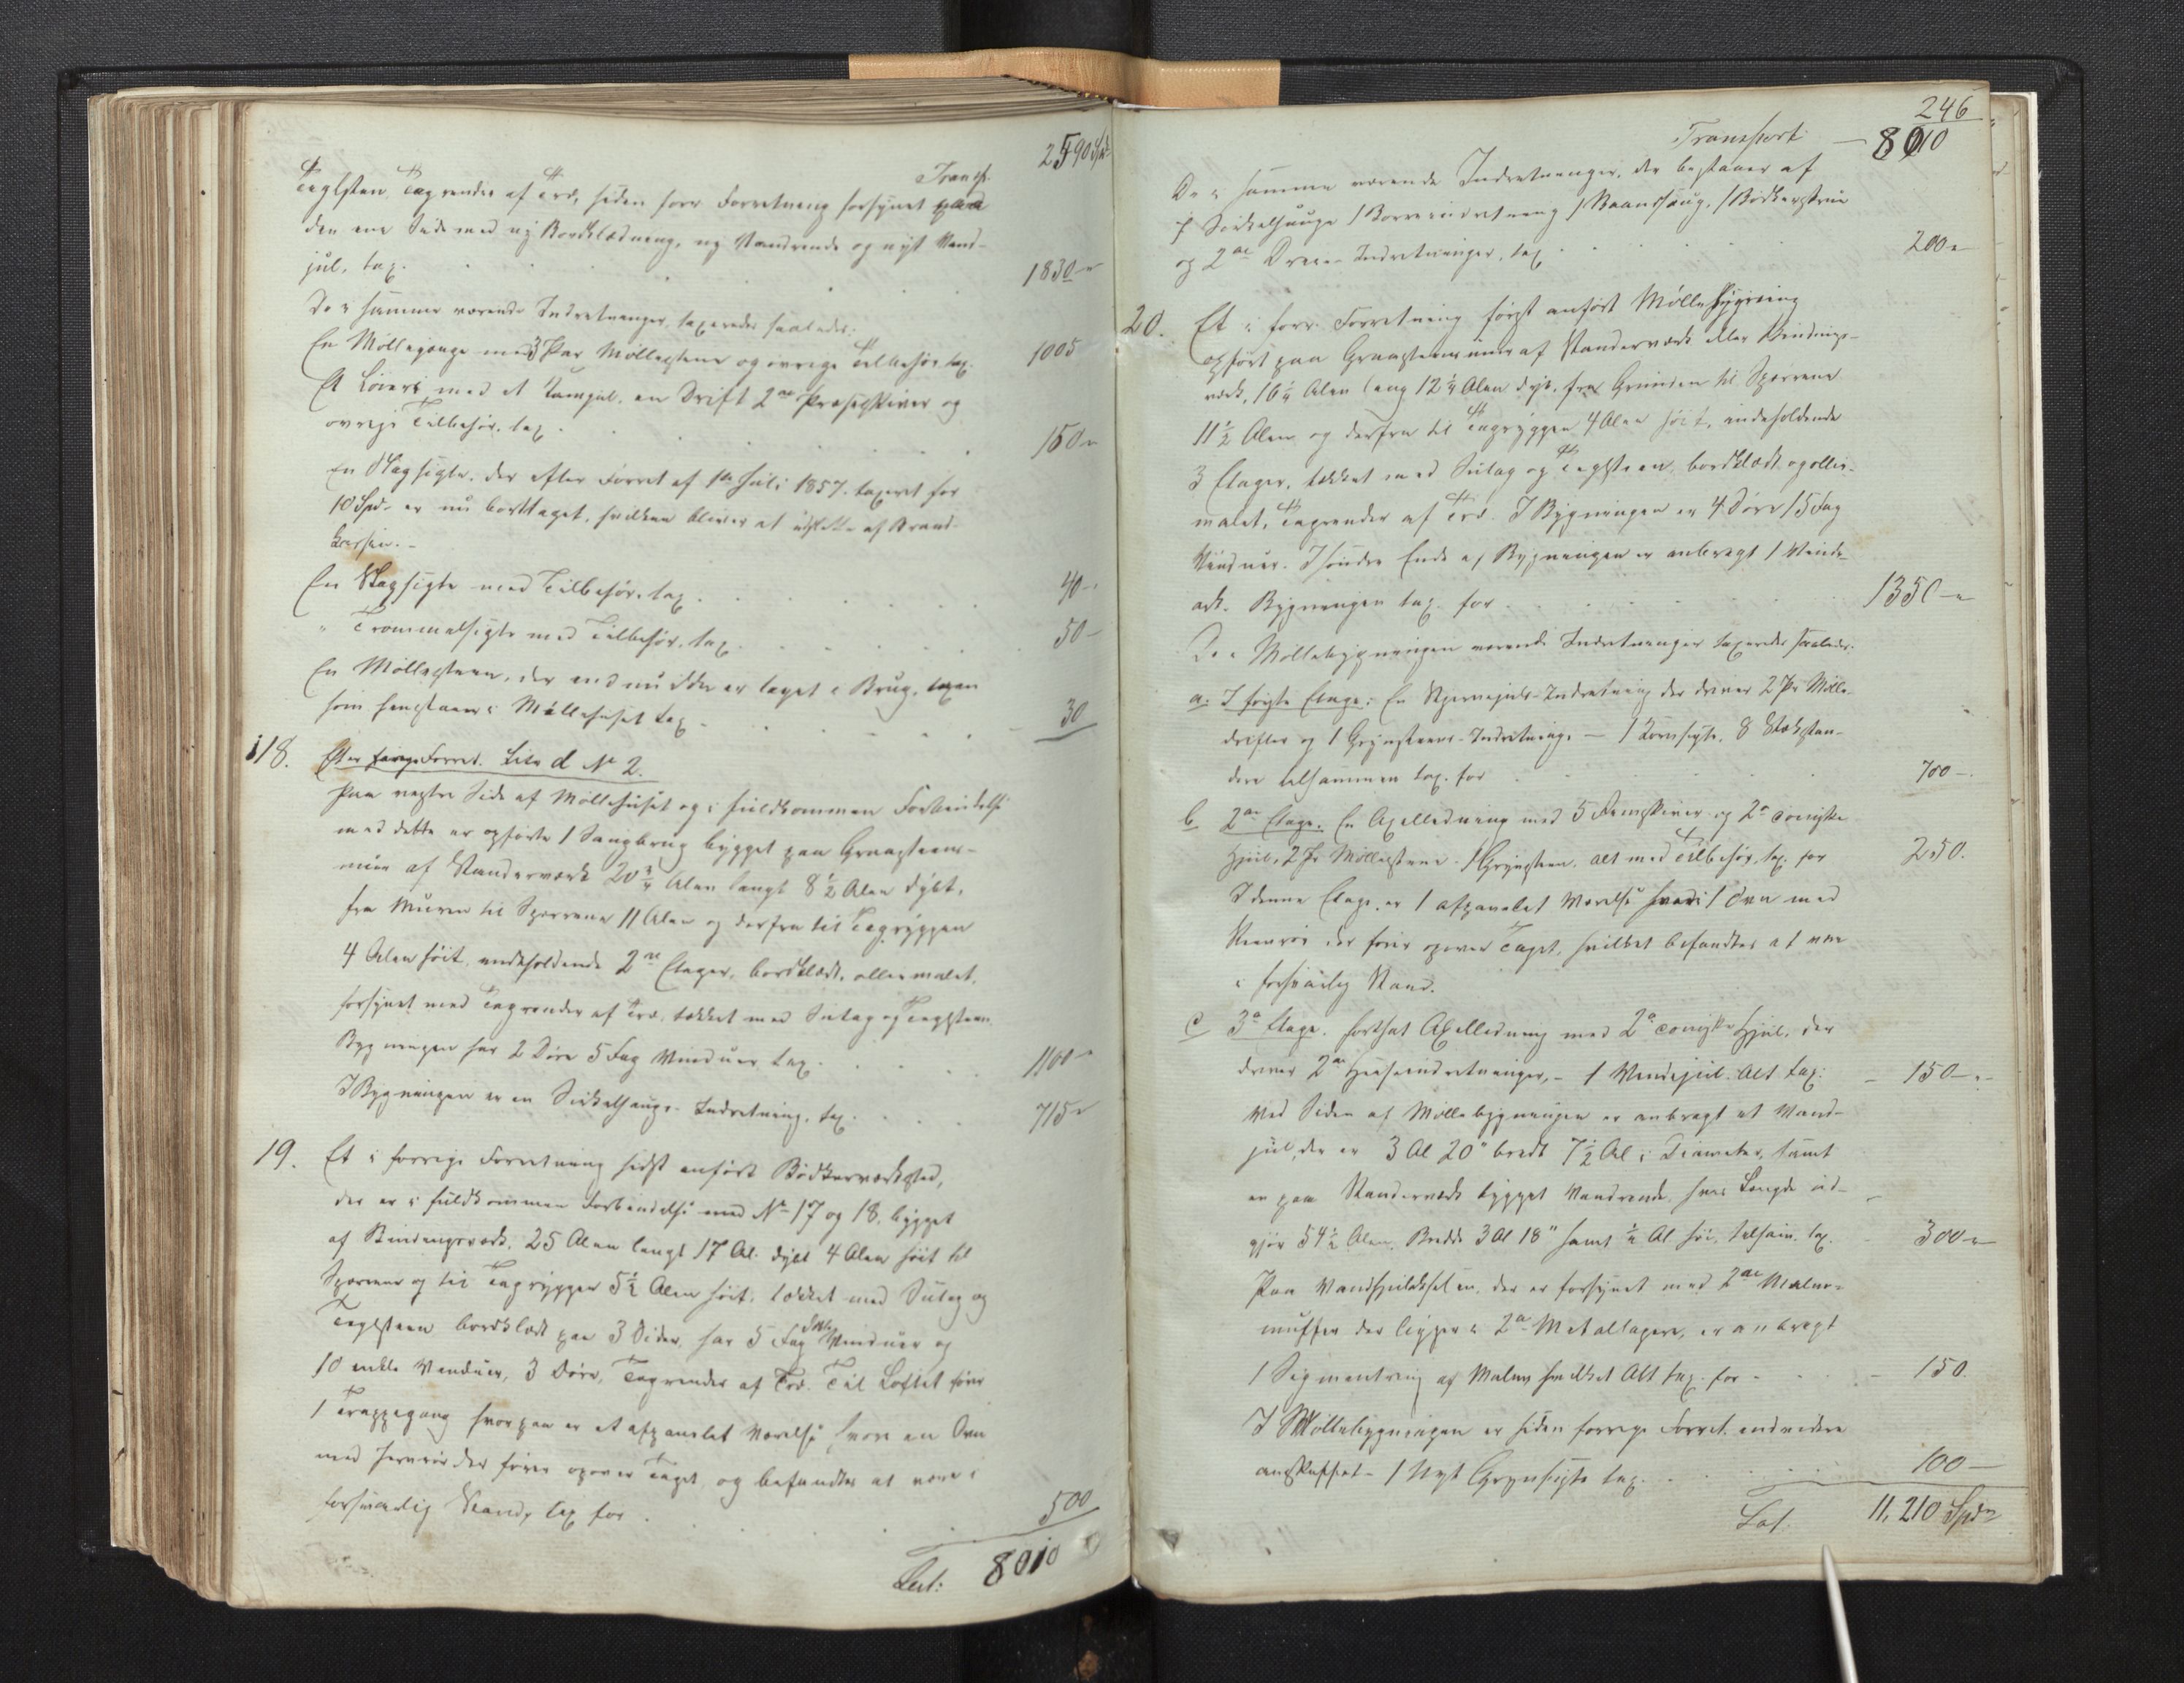 Transp. 2590 Spd
Teglsten, Tagrender af Træ, siden forr. Forretning forsynet paa
den ene Side med ny Bordklædning, ny Vandrende og nyt Vand-
jul, tax. 1830 "
De i samme værende Indretninger, taxeredes saaledes:
En Møllegange med 3 Par Møllestene og øvrige Tilbehør, tax. 1005
Et med et Kamjul, en Drift 2de og
øvrige Tilbehør, tax 150 "
En Slagsigte, der efter Forret af 1ste Juli 1857 taxeret for
10 Spd. er nu borttaget, hvilken bliver at udslette af Brand-
kassen.
En Slagsigte med Tilbehør, tax. 40 -
" Trommelsigte med Tilbehør, tax. 50 -
En Møllesteen, der endnu ikke er taget i Brug, men
som henstaaer i Møllehuset tax 30
118. Efter forrige Forret. Litr d No 2.
Paa vestre Side af Møllehuset og i fuldkommen Forbindelse
med dette er opførte 1 Saugbrug bygget paa Graasteens-
muur af Standerværk 20 3/4 Alen langt 8 1/2 Alen dybt,
fra Muren til Sperrerne 11 Alen og derfra til Tagryggen
4 Alen høit, indeholdende 2de Etager, bordklædt, oliemalet,
forsynet med Tagrender af Træ, tækket med Sutag og Teglsteen
Bygningen har 2 Døre 5 Fag Vinduer tax. 1100 "
I Bygningen er en Sirkelsaugs-Indretning, tax. 715 "
19. Et i forrige Forretning sidst anført Bødkerværksted,
der er i fuldkommen Forbindelse med No 17 og 18, bygget
af Bindingsværk, 25 Alen langt 17 Al. dybt 4 Alen høit til
Sperrerne og til Tagryggen 5 1/2 Alen høit, tækket med Sutag og
Teglsteen bordklædt paa 3 Sider, har 5 Fag Vinduer og
10 enkle Vinduer, 3 Døre, Tagrender af Træ. Til Loftet fører
1 Trappegang hvorpaa er et afpanelet Værelse, hvori en Ovn
med Jernrør der fører opover Taget, og befandtes at være i
forsvarlig Stand, tax for 500
Lat: 8010
246
Transport - 8010
De i samme værende Indretninger, der bestaaer af
1 Sirkelsauge 1 Boreindretning 1 Baandsaug, 1
og 2de Dreie-Indretninger, tax 200 "
20. Et i forr. Forretning først anført Møllebygning
opført paa Graasteensmuur af Standerværk eller Bindings-
værk, 16 1/4 Alen lang 12 1/4 Alen dyb, fra Grunden til Sperrerne
11 1/2 Alen og derfra til Tagryggen 4 Alen høit, indeholdende
3 Etager, tækket med Sutag og Teglsteen, bordklædt og olie-
malet, Tagrender af Træ. I Bygningen er 4 Døre 15 Fag
Vinduer. I søndre Ende af Bygningen er anbragt 1 Vindu-
ark. Bygningen tax for 1350 - "
De i Møllebygningen værende Indretninger taxeredes saaledes:
a. I første Etage: En Stjernejuls-Indretning der driver 2 Pr Mølle-
drifter og 1 Grynsteens-Indretning - 1 Kornsigte, 8 Stk Stan-
dere tilsammen tax. for 700 -
b 2den Etage. En Axelledning med 5 Remskiver og 2de coniske
Hjul, 2 Pr Møllestene, 1 Grynsteen, alt med Tilbehør, tax. for 250.
I denne Etage er 1 afpanelet Værelse hvori 1 Ovn med
Steenrør der fører opover Taget, hvilket befandtes at være
i forsvarlig Stand.
c 3de Etage. Forsat Axelledning med 2de coniske Hjul, der
driver 2de Heiseindretninger, - 1 Vendejul. Alt tax: - 150 - " -
Ved Siden af Møllebygningen er anbragt et Vand-
jul, der er 3 Al 20" bredt 7 1/2 Al i Diameter, samt
en paa Standerværk bygget Vandrende, hvis Længde ud-
gjør 54 1/2 Alen, Bredde 3 Al 18" samt 1/2 Al høi, tilsam. tax. 300 - " -
Paa Vandhjulakselen, der er forsynet med 2de Malm-
muffer der ligger i 2de Metallagere, er anbragt
1 Segmentring af Malm hvilket Alt tax. for - - 150.
I Møllebygningen er siden forrige Forret. endvidere
anskaffet - 1 Nyt Grynsigte tax. 100 -
Lat. 11,210 Spd